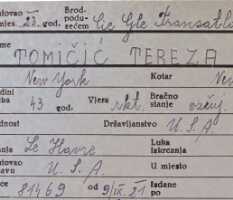 Brod-
podu-
zećem Cie Gle Transatl
TOMIČIĆ TEREZA
New York Kotar New
43 god. Vjera rkt. Bračno
stanje
Državljanstvo U.S.A.
Le Havre Luka
iskrcanja
U.S.A. U mjesto
81469 od 9/IX.27 Izdane
po